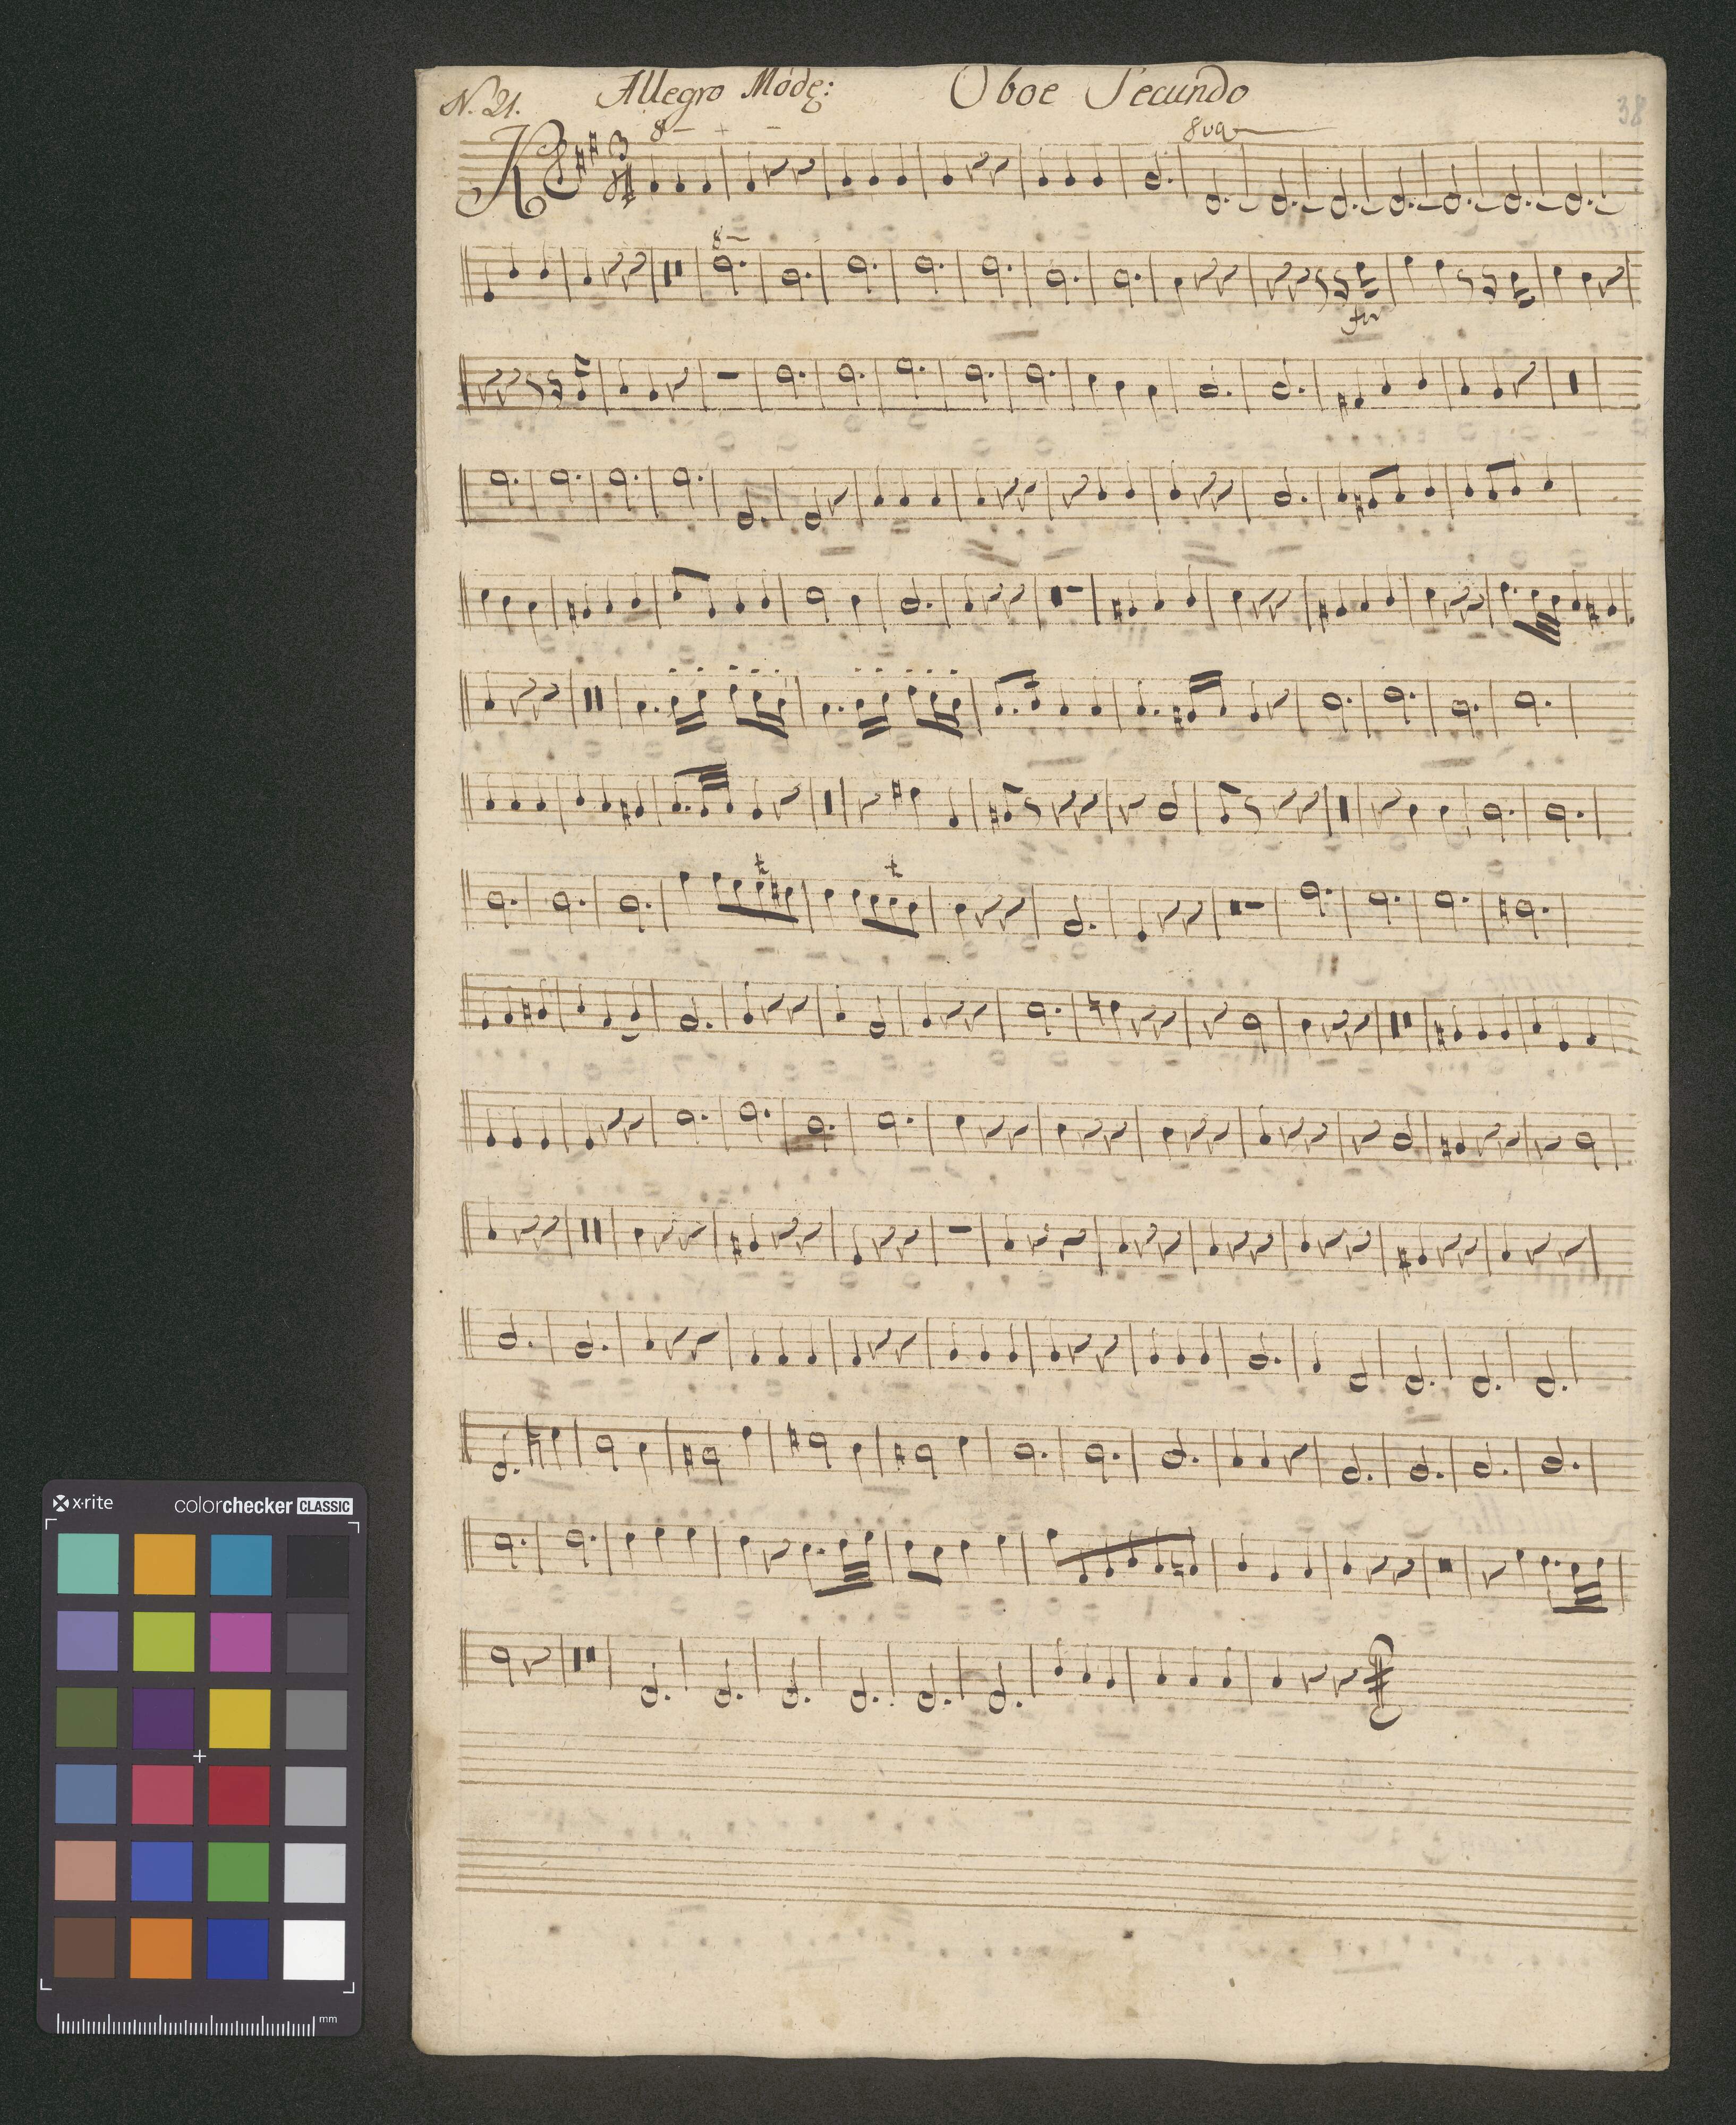 N. 21. Allegro Mode: Oboe Secundo
38
8
8va
3
4
8
t t
x·rite colorchecker CLASSIC
mm